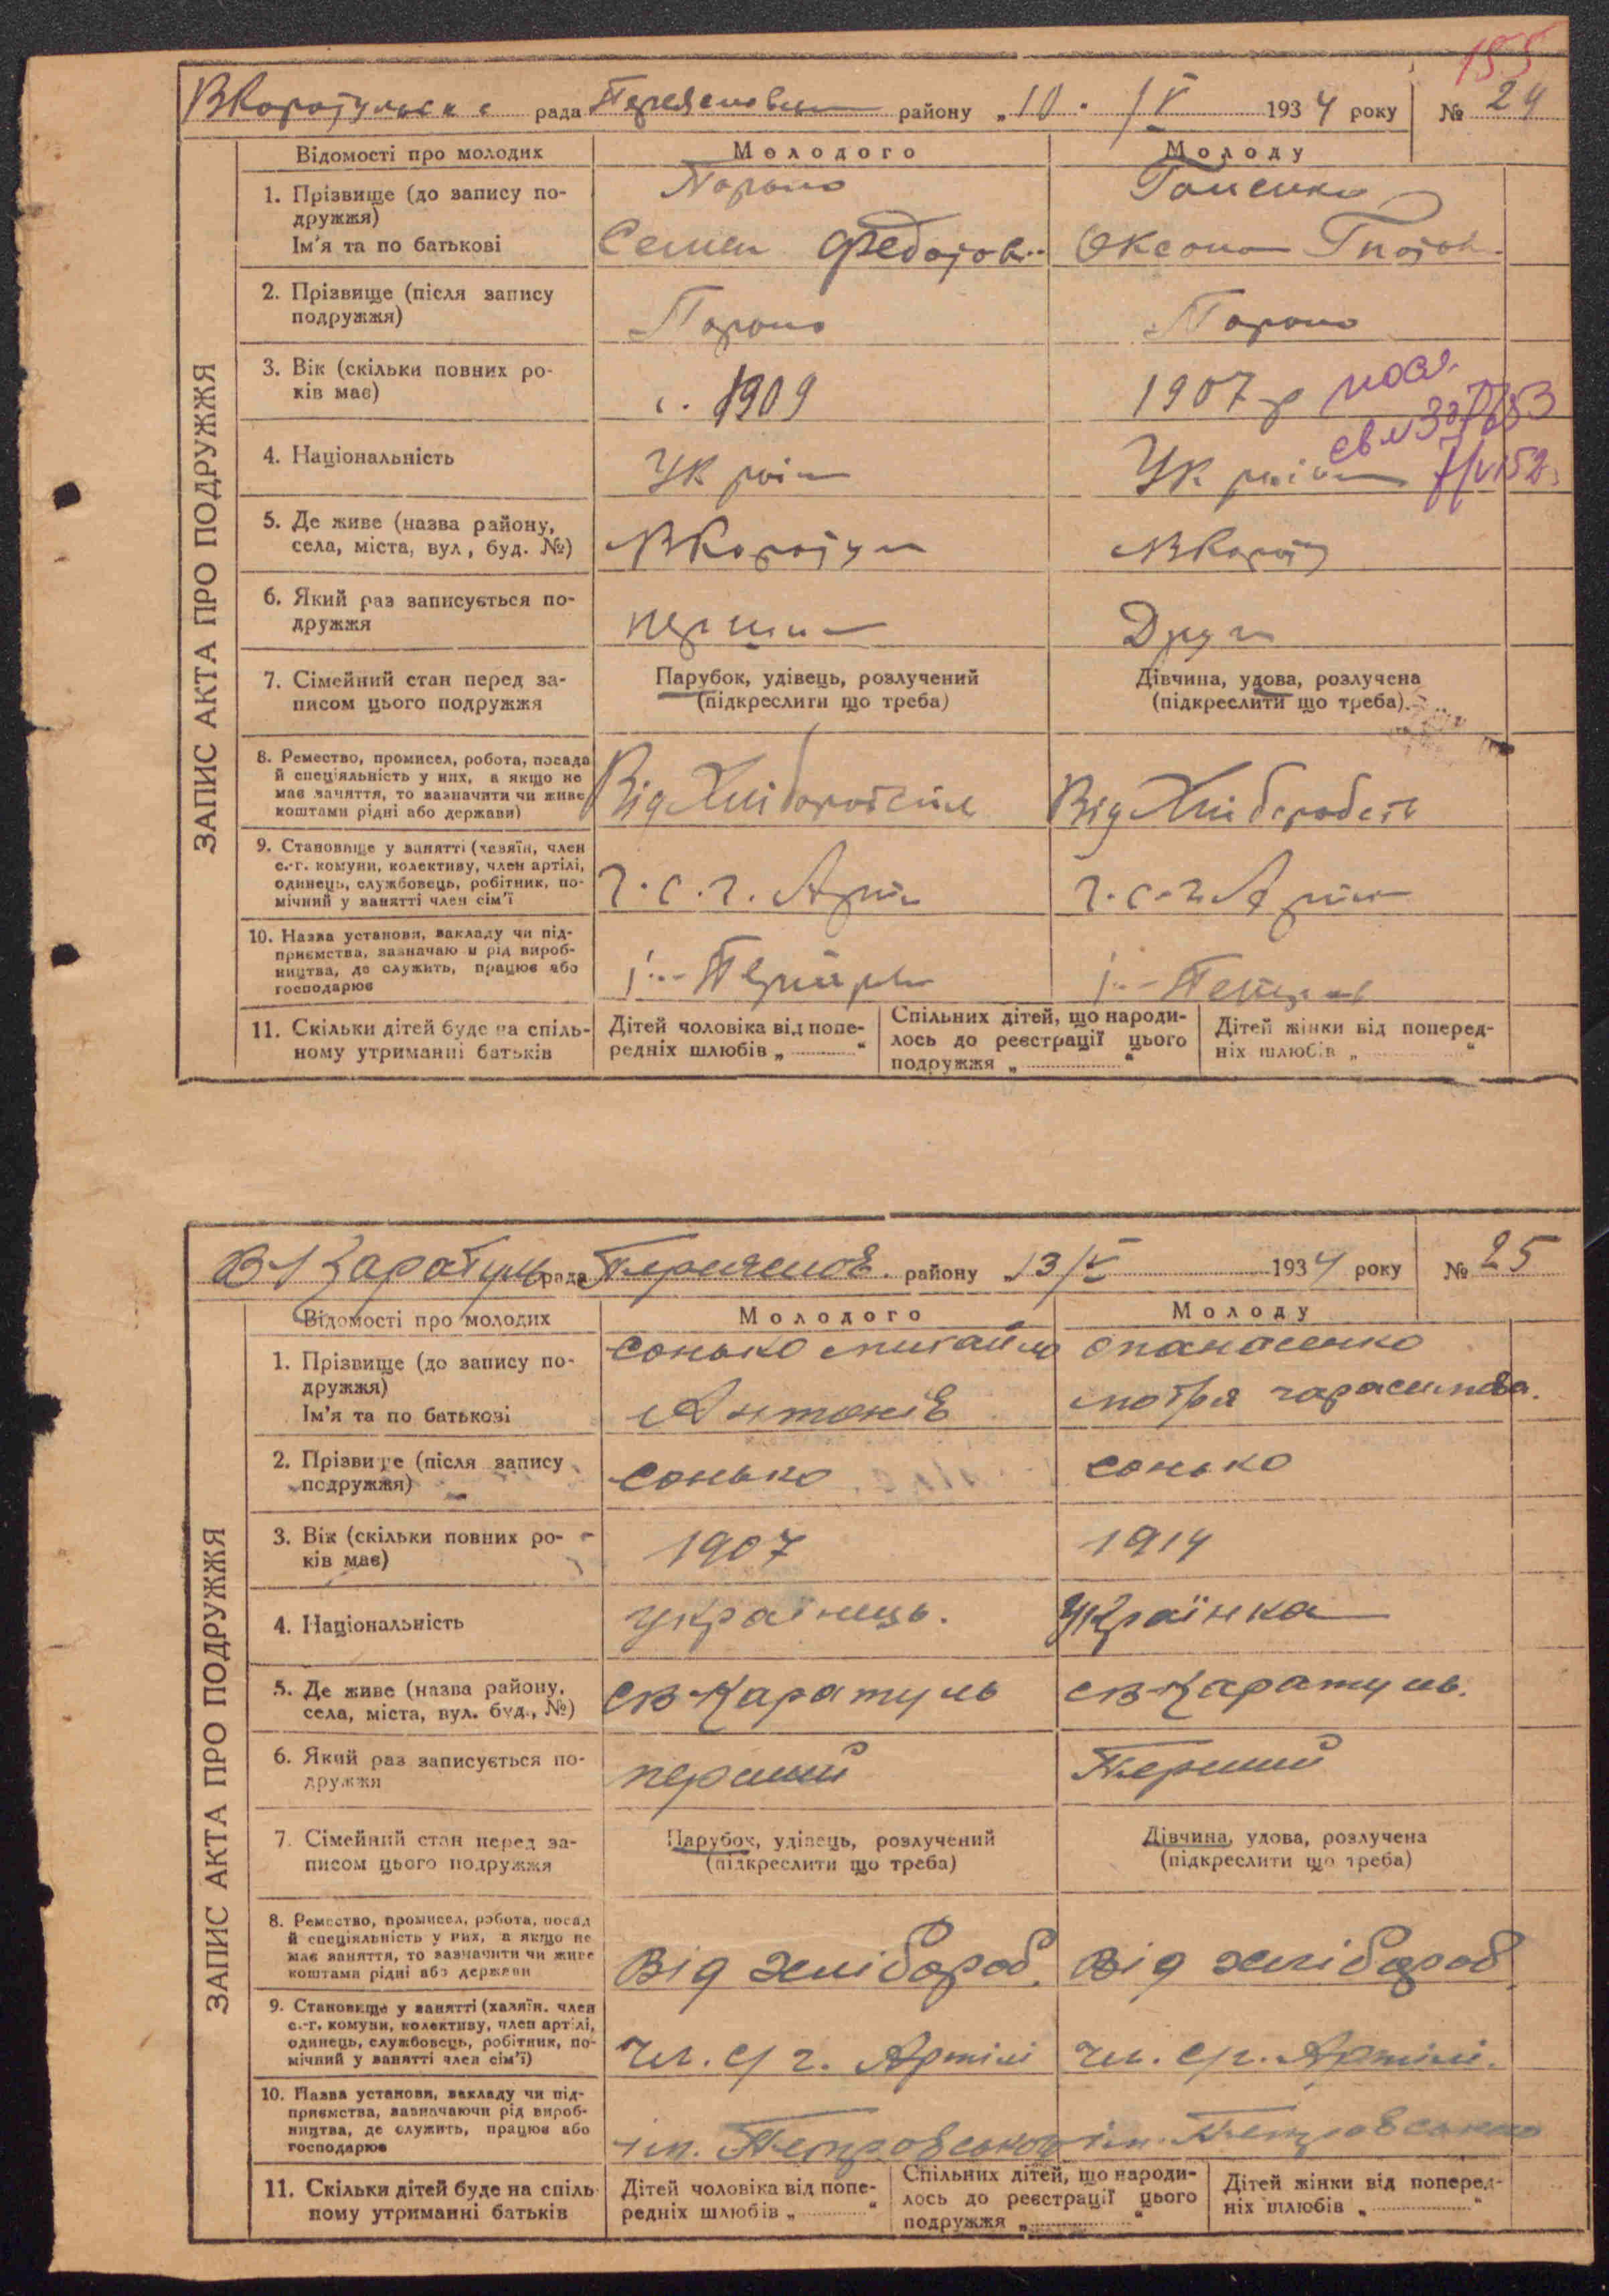 155
ВКаратульська рада Переяславськ району „10. IV 1934 року № 24
ЗАПИС АКТА ПРО ПОДРУЖЖЯ
Відомості про молодих Молодого Молоду
1. Прізвище (до запису подружжя)
Ім'я та по батькові
Семен Федотов. Оксана Гнатов.
2. Прізвище (після запису подружжя)
3. Вік (скільки повних років має) 1909 1907 р
7/VI 52
4. Національність Україн Україн
5. Де живе (назва району, села, міста, вул, буд. №) ВКаратул ВКарат
6. Який раз записується подружжя перший Други
7. Сімейний стан перед записом цього подружжя
Парубок, удівець, розлучений (підкреслити що треба)
Дівчина, удова, розлучена (підкреслити що треба)
8. Ремество, промисел, робота, посада й спеціяльність у них, а якщо не має заняття, то зазначити чи живе коштами рідні або держави)
Від Хліборобств Від Хліборобств
9. Становище у занятті (хазяїн, член с.-г. комуни, колективу, член артілі, одинець, службовець, робітник, помічний у занятті член сім'ї
Ч. с. г. Артіл Ч. с. г. Артіл
10. Назва установи, закладу чи підприємства, зазначаючи рід виробництва, де служить, працює або господарює
11. Скільки дітей буде на спільному утриманні батьків
Дітей чоловіка від попередніх шлюбів „ “
Спільних дітей, що народилось до реєстрації цього подружжя „ “
Дітей жінки від попередніх шлюбів „ “
В Каратуль рада Переяслов. району „13/IV 1934 року № 25
ЗАПИС АКТА ПРО ПОДРУЖЖЯ
Відомості про молодих Молодого Молоду
1. Прізвище (до запису подружжя)
Ім'я та по батькові
Сонько Михайло Опанасенко
Антонів мотря гарасимова.
2. Прізвище (після запису подружжя) Сонько Сонько
3. Вік (скільки повних років має) 1907 1914
4. Національність українець. Українка
5. Де живе (назва району, села, міста, вул. буд., №) с В-Каратуль с В-Каратуль.
6. Який раз записується подружжя перший Перший
7. Сімейний стан перед записом цього подружжя
Парубок, удівець, розлучений (підкреслити що треба)
Дівчина, удова, розлучена (підкреслити що треба)
8. Ремество, промисел, робота, посад й спеціяльність у них, а якщо не має заняття, то зазначити чи живе коштами рідні або держави
Від хлібороб. Від хлібороб.
9. Становище у занятті (хазяїн. член с.-г. комуни, колективу, член артілі, одинець, службовець, робітник, помічний у занятті член сім'ї)
Чл. с/г. Артілі Чл. с/г. Артілі.
10. Назва установи, закладу чи підприємства, зазначаючи рід виробництва, де служить, працює або господарює
ім. Петровського ім. Петровського
11. Скільки дітей буде на спільному утриманні батьків
Дітей чоловіка від попередніх шлюбів „ “
Спільних дітей, що народилось до реєстрації цього подружжя „ “
Дітей жінки від попередніх шлюбів „ “